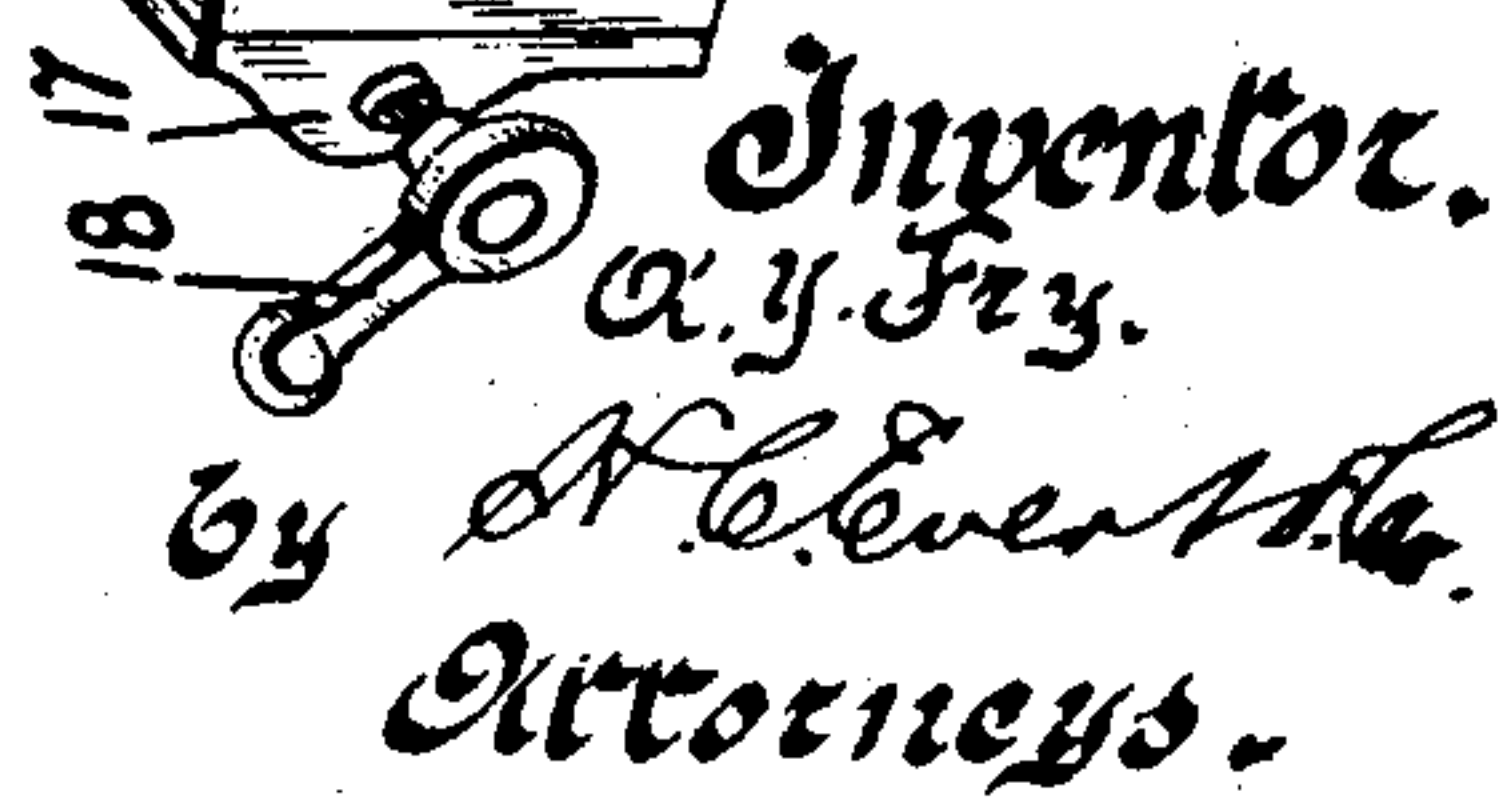 17
18
Inventor.
A. Y. Fry.
by H. C. Evert & Co.
Attorneys.